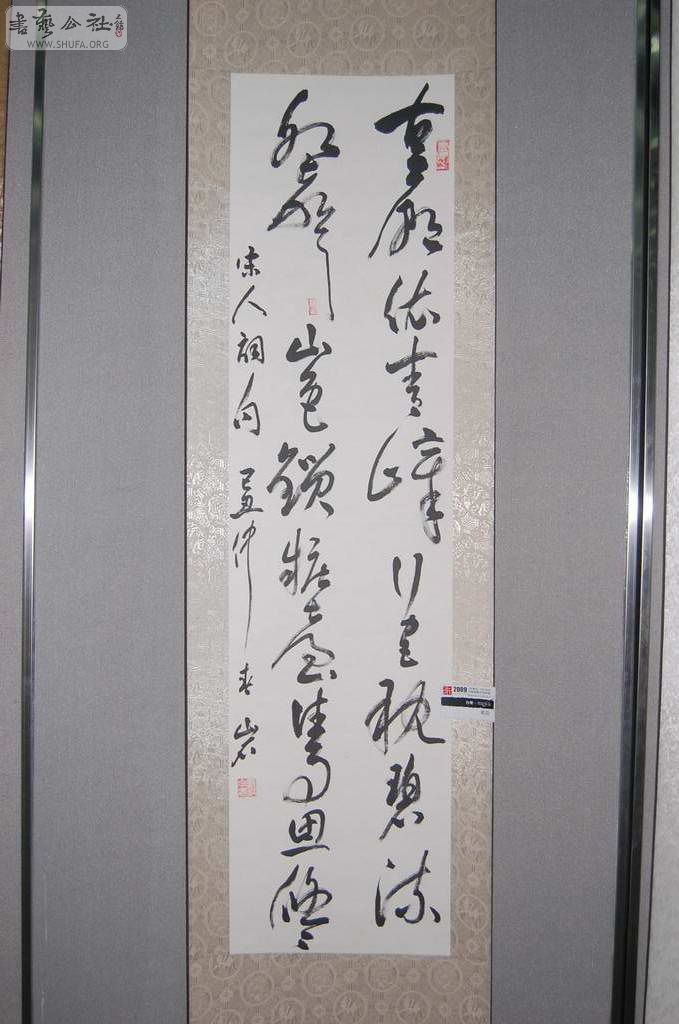 書藝公社
WWW.SHUFA.ORG
古廟依青嶂行宮枕碧流
水聲山色鎖粧臺往事思悠々
宋人詞句 己丑仲春 岩
2009